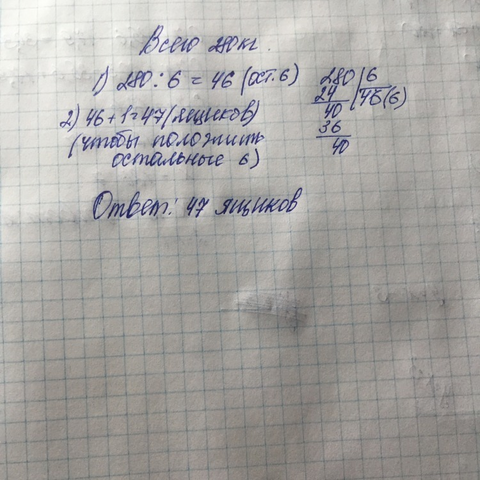 Всего 280 кг.
1) 280 : 6 = 46 (ост. 6)
2) 46 + 1 = 47 (ящиков)
(чтобы положить
остальные 6)
280 | 6
24 | 46 (6)
40
36
40
Ответ: 47 ящиков